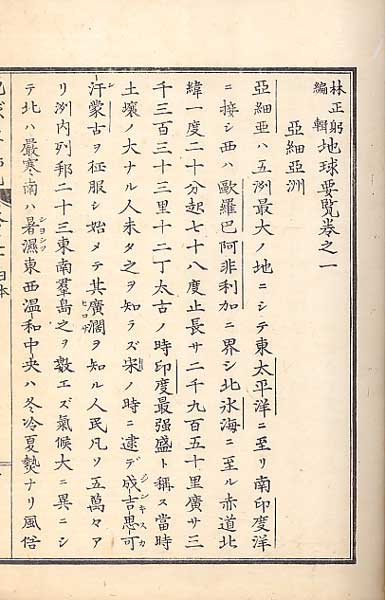 林正躬編輯 地球要覽卷之一
亞細亞洲
亞細亜ハ五洲最大ノ地ニシテ東太平洋ニ至リ南印度洋
ニ接シ西ハ歐羅巴阿非利加ニ界シ北氷海ニ至ル赤道北
緯一度二十分起七十八度止長サ二千九百五十里廣サ三
千三百三十三里十二丁太古ノ時印度最强盛ト稱ス當時
土壤ノ大ナル人未タ之ヲ知ラズ宋ノ時ニ逮デ成吉思可
汗蒙古ヲ征服シ始メテ其廣濶ヲ知ル人民凡ソ五萬々ア
リ洲内列邦二十三東南羣島之ヲ數エズ氣候大ニ異ニシ
テ北ハ嚴寒南ハ暑濕東西温和中央ハ冬冷夏熱ナリ風俗
日本